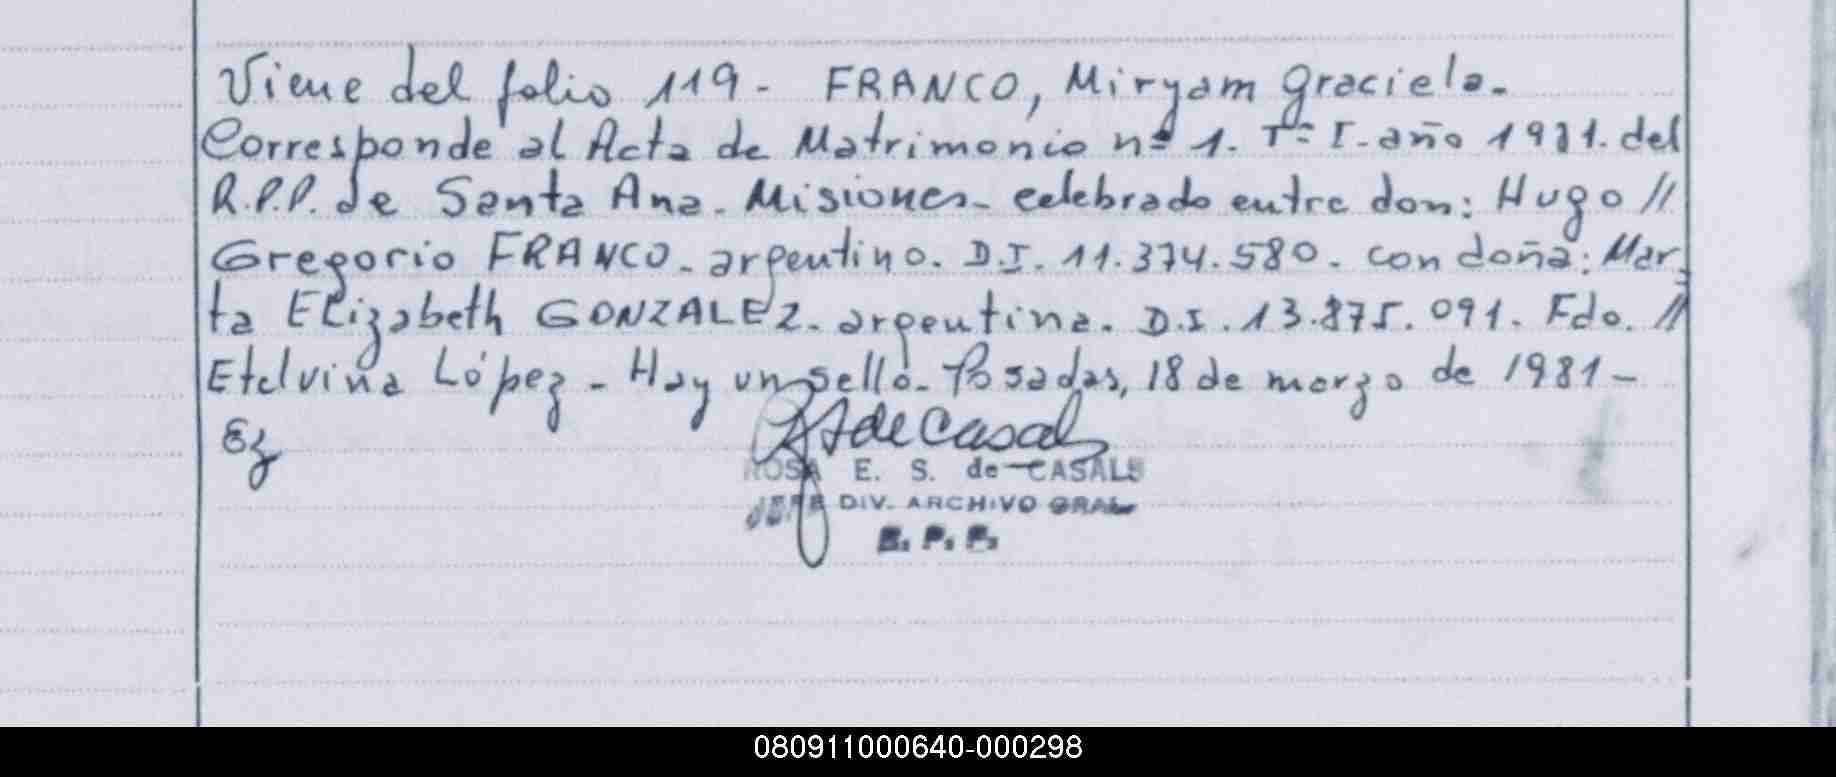 Viene del folio 119 - FRANCO, Miryam Graciela.
Corresponde al Acta de Matrimonio nº 1. Tº I. año 1981. del
R.P.P. de Santa Ana. Misiones - celebrado entre don: Hugo //
Gregorio FRANCO - argentino. D.I. 11.374.580. con doña: Mar-
ta Elizabeth GONZALEZ - argentina. D.I. 13.875.091. Fdo. //
Etelvina López - Hay un sello - Posadas, 18 de marzo de 1981 -
Ez
de Casals
ROSA E. S. de CASALS
JEFE DIV. ARCHIVO GRAL
R. P. P.
080911000640-000298